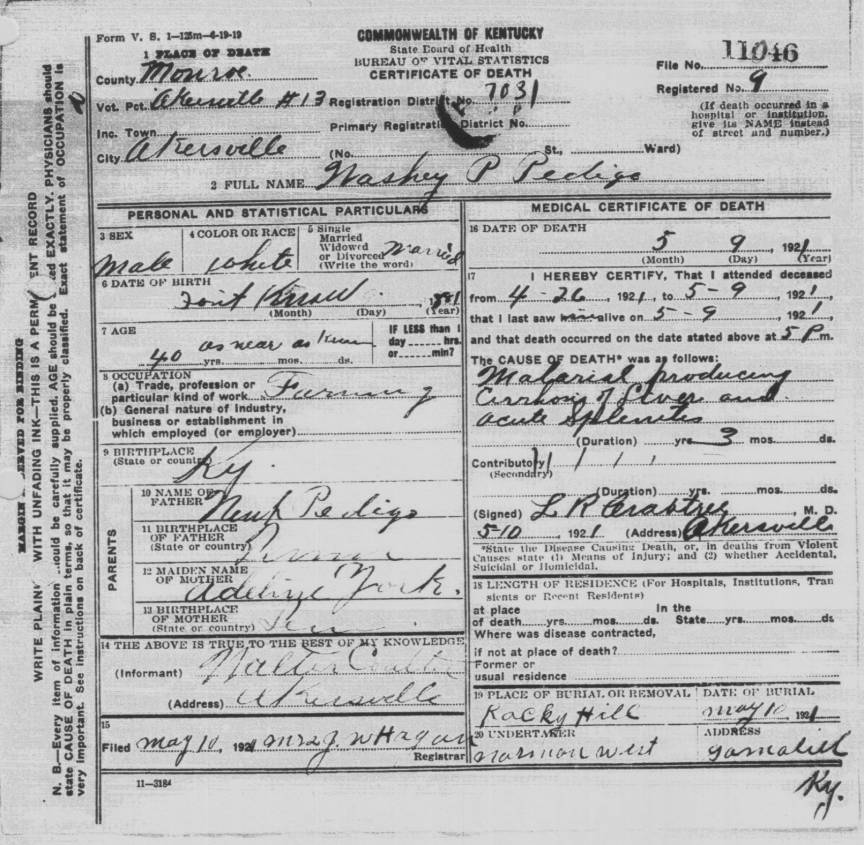 Form V. S. 1—125m—4-19-19
COMMONWEALTH OF KENTUCKY
State Board of Health
BUREAU OF VITAL STATISTICS
CERTIFICATE OF DEATH
File No. 11046
Registered No. 9
(If death occurred in a hospital or institution, give its NAME instead of street and number.)
1 PLACE OF DEATH
County Monroe
Vot. Pct. Akersville #13
Registration District No. 7031
Inc. Town
Primary Registration District No.
City Akersville (No. St., Ward)
2 FULL NAME Washey P Pedigo
PERSONAL AND STATISTICAL PARTICULARS
3 SEX Male
4 COLOR OR RACE White
5 Single Married Widowed or Divorced (Write the word) Married
6 DATE OF BIRTH
(Month) (Day) (Year)
7 AGE
40 yrs. mos. ds.
as near as
IF LESS than 1 day hrs. or min?
8 OCCUPATION
(a) Trade, profession or particular kind of work Farming
(b) General nature of industry, business or establishment in which employed (or employer)
9 BIRTHPLACE
(State or country) Ky.
PARENTS
10 NAME OF FATHER Pedigo
11 BIRTHPLACE OF FATHER
(State or country)
12 MAIDEN NAME OF MOTHER Adeline York.
13 BIRTHPLACE OF MOTHER
(State or country)
14 THE ABOVE IS TRUE TO THE BEST OF MY KNOWLEDGE
(Informant) Walter
(Address) Akersville
15
Filed May 10, 1921 Mrs J. W Hagan
Registrar
11—3184
MEDICAL CERTIFICATE OF DEATH
16 DATE OF DEATH
5 9, 1921
(Month) (Day) (Year)
17 I HEREBY CERTIFY, That I attended deceased
from 4-26, 1921, to 5-9, 1921,
that I last saw him alive on 5-9, 1921,
and that death occurred on the date stated above at 5 P m.
The CAUSE OF DEATH* was as follows:
Malarial producing
Cirrhosis of Liver and
acute Splenitis
(Duration) yrs. 3 mos. ds.
Contributory
(Secondary)
(Duration) yrs. mos. ds.
(Signed) L R Crabtree, M. D.
5-10, 1921 (Address) Akersville
*State the Disease Causing Death, or, in deaths from Violent
Causes state (1) Means of Injury; and (2) whether Accidental,
Suicidal or Homicidal.
18 LENGTH OF RESIDENCE (For Hospitals, Institutions, Tran
sients or Recent Residents)
at place of death yrs. mos. ds. In the State yrs. mos. ds.
Where was disease contracted,
if not at place of death?
Former or
usual residence
19 PLACE OF BURIAL OR REMOVAL Rocky Hill
DATE OF BURIAL May 10, 1921
20 UNDERTAKER Norman West
ADDRESS Gamaliel
Ky.
MARGIN RESERVED FOR BINDING
WRITE PLAINLY WITH UNFADING INK—THIS IS A PERMANENT RECORD
N. B.—Every item of information should be carefully supplied. AGE should be stated EXACTLY. PHYSICIANS should
state CAUSE OF DEATH in plain terms, so that it may be properly classified. Exact statement of OCCUPATION is
very important. See instructions on back of certificate.